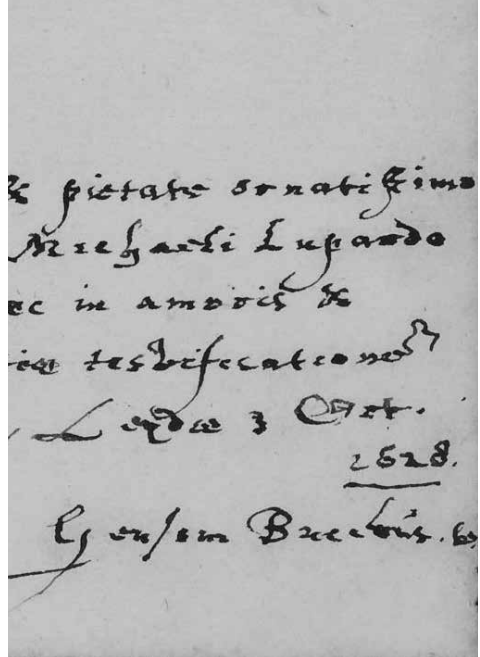 & pietate ornatissimo
Michaeli Lupardo
ec in amoris &
testificationem
Leydæ 3 Octob.
1628.
Gersom Bucerus.